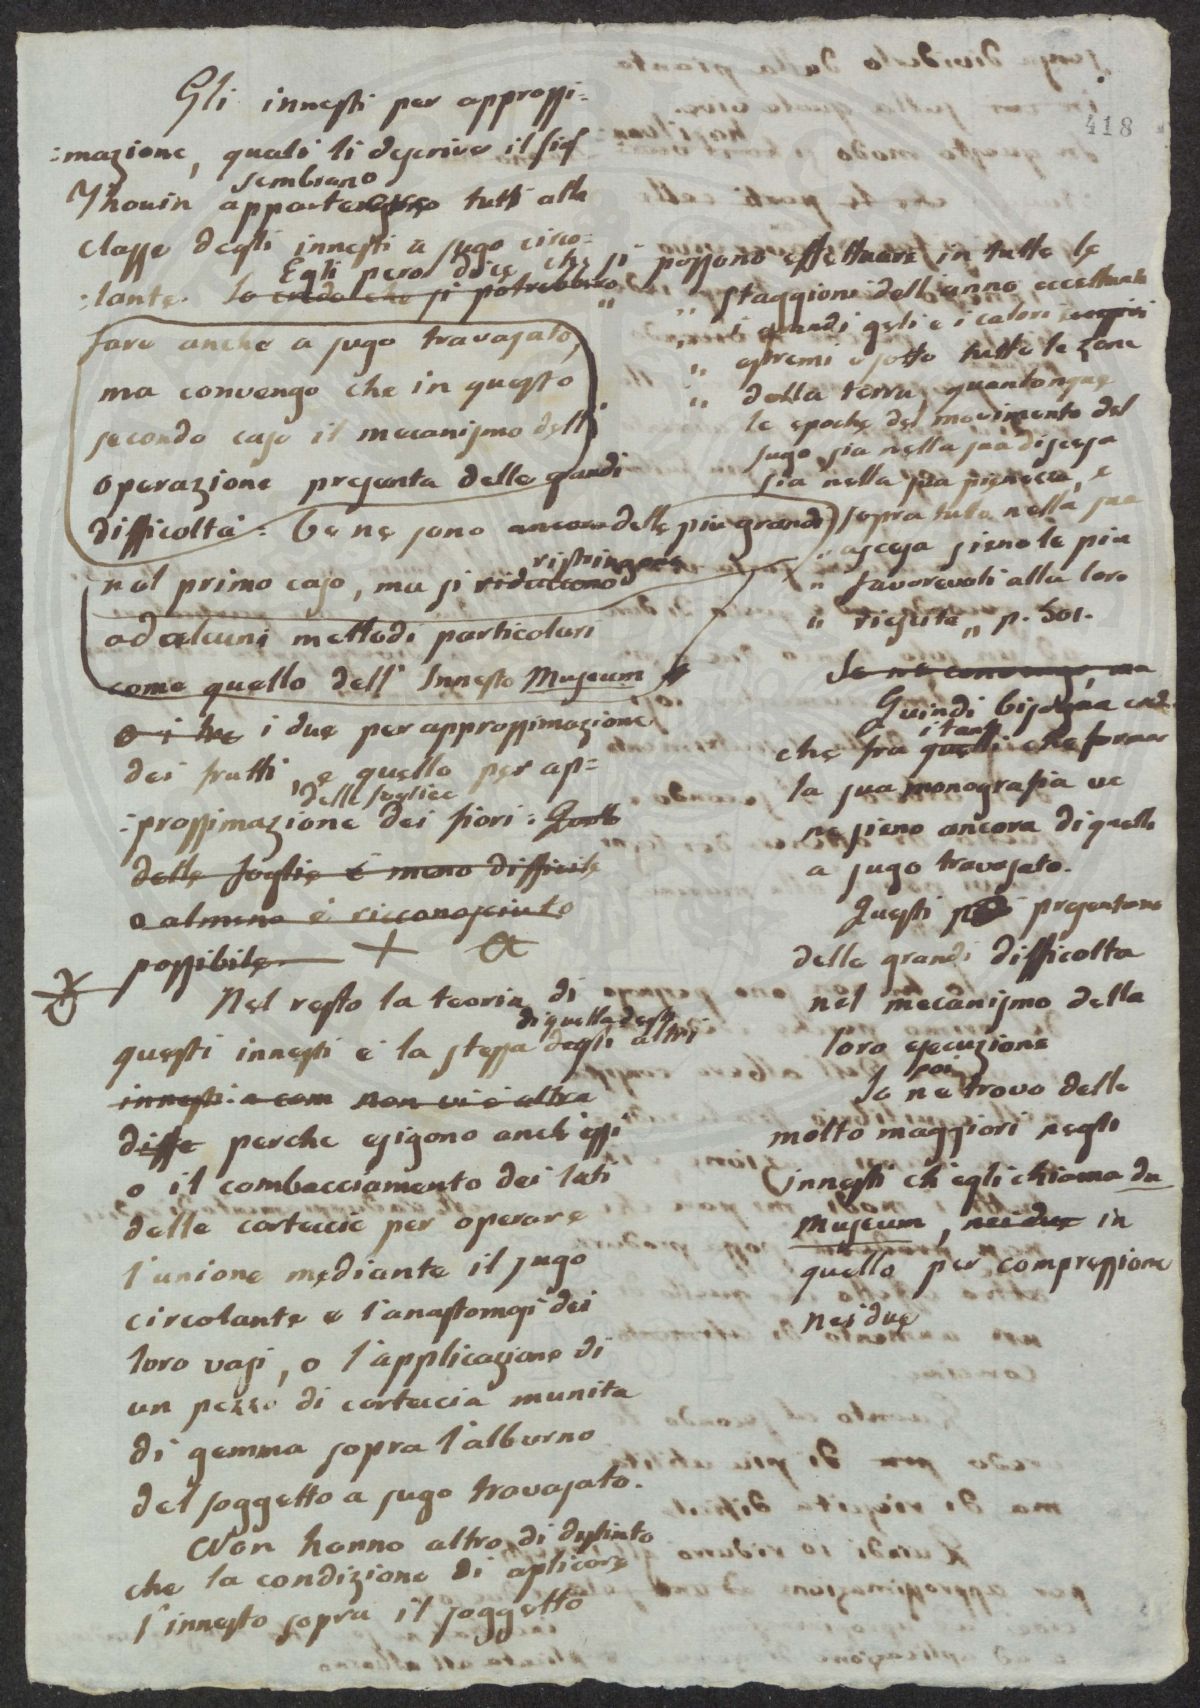 418
Gli innesti per approssi=
=mazione, quali li descrive il sig
sembrano
Thouin appartengono tutti alla
classe degli innesti a sugo circo=
Egli però dice che si possono effettuare in tutte le
=lante. Io credo che si potrebbero
fare anche a sugo travasato,
ma convengo che in questo
secondo caso il mecanismo dell'
operazione presenta delle grandi
difficoltà. Ve ne sono ancora delle più grandi
ristringono
nel primo caso, ma si riducono
ad alcuni mettodi particolari
come quello dell' Innesto Museum
o i tre i due per approssimazione
dei frutti, e quello per ap=
delle foglie e
=prossimazione dei fiori.
delle foglie è meno difficile
o almeno è ricconosciuto
possibile.
Nel resto la teoria di
di quella degli
questi innesti è la stessa degli altri
innesti a com non vi è altra
diffe perche esigono anch'essi
o il combacciamento dei lati
delle corteccie per operare
l'unione mediante il sugo
circolante e l'anastomosi dei
loro vasi, o l'applicazione di
un pezzo di corteccia munita
di gemma sopra l'alburno
del soggetto a sugo travasato.
Non hanno altro di distinto
che la condizione di aplicare
l'innesto sopra il soggetto
" staggioni dell'anno eccettuati
" i grandi geli e i calori
" estremi e sotto tutte le zone
" della terra, quantonque
le epoche del movimento del
sugo sia nella sua discesa
sia nella sua pienezza, e
sopra tuto nella sua
" ascesa sieno le più
" favorevoli alla loro
" riescita „ p. 501.
Io ne convengo, ma
Quindi bisogna
i tanti
che fra quelli che forma
la sua monografia ve
ne sieno ancora di quelli
a sugo travasato.
Questi presentano
delle grandi difficoltà
nel mecanismo della
loro esecuzione
poi
Io ne trovo delle
molto maggiori negli
innesti ch'egli chiama du
Museum, nei due in
quello per compressione
nei due